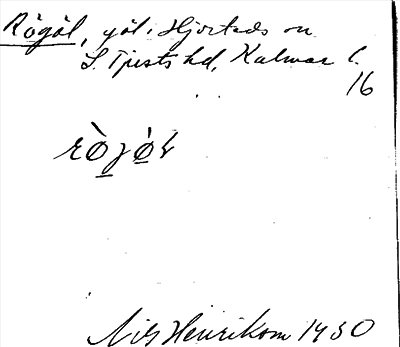 Rögöl, göl i Hjorteds sn
S. Tjusts hd, Kalmar l.
16
rö̀jö̀l
Nils Henrikson 1930